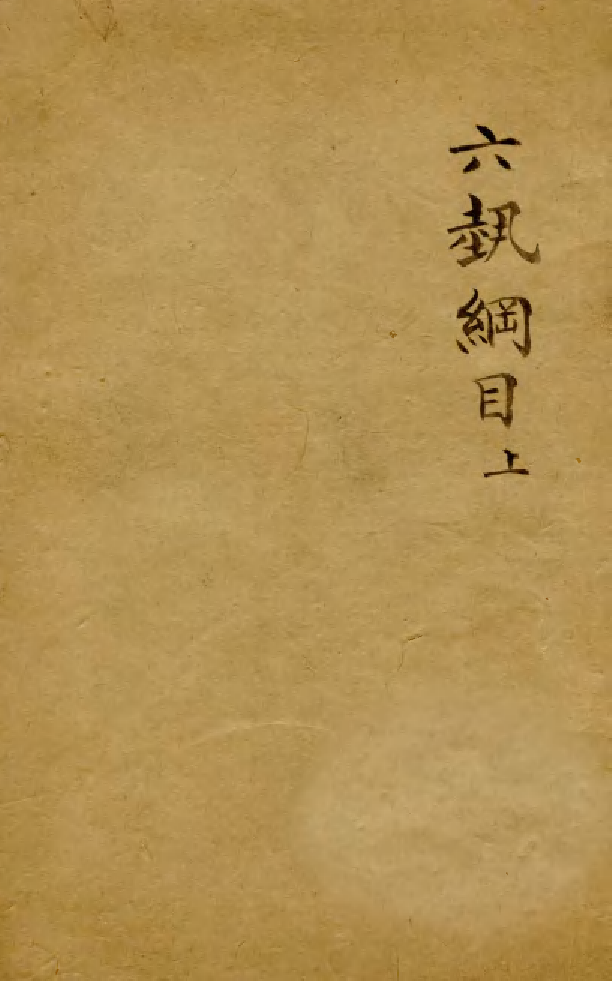 六埶綱目上